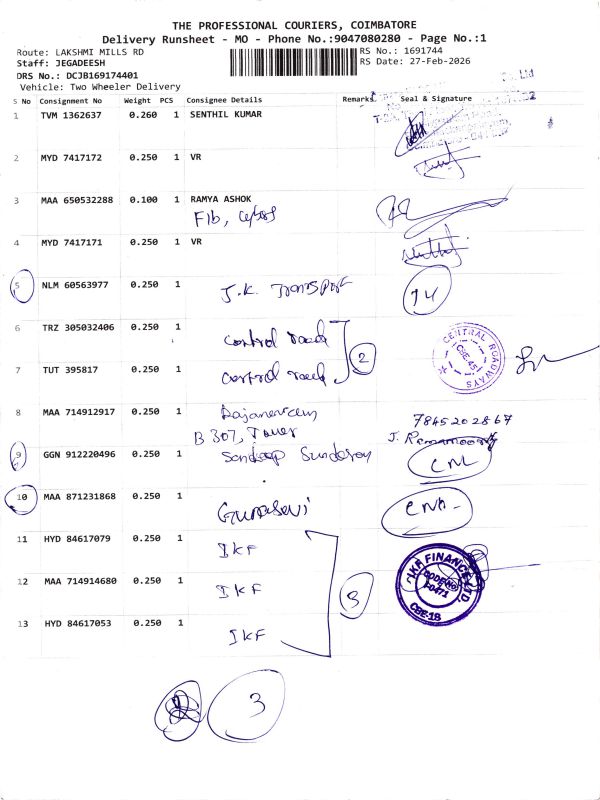 THE PROFESSIONAL COURIERS, COIMBATORE
Delivery Runsheet - MO - Phone No.:9047080280 - Page No.:1
Route: LAKSHMI MILLS RD
RS No.: 1691744
Staff: JEGADEESH
RS Date: 27-Feb-2026
DRS No.: DCJB169174401
Vehicle: Two Wheeler Delivery
S No Consignment No Weight PCS Consignee Details Remarks Seal & Signature
1 TVM 1362637 0.260 1 SENTHIL KUMAR
2 MYD 7417172 0.250 1 VR
3 MAA 650532288 0.100 1 RAMYA ASHOK
4 MYD 7417171 0.250 1 VR
5 NLM 60563977 0.250 1 J.K. Transport 14
6 TRZ 305032406 0.250 1 control road
2
CENTRAL ROADWAYS CBE-45
7 TUT 395817 0.250 1 control road
8 MAA 714912917 0.250 1
7845202867
B 307, Tower
J. Ramamoorthy
9 GGN 912220496 0.250 1 Sandeep Sunderay CNL
10 MAA 871231868 0.250 1
11 HYD 84617079 0.250 1 IKF
12 MAA 714914680 0.250 1 IKF
3
IKF FINANCE LTD. CODE No F0471 CBE-18
13 HYD 84617053 0.250 1 IKF
3